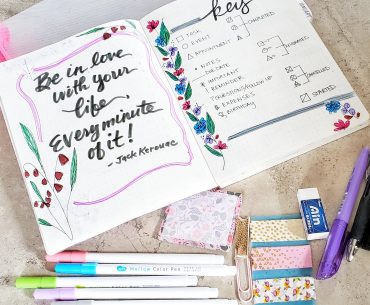 Be in love
with your
life.
Every minute
of it!
- Jack Kerouac
key
TASK
EVENT
APPOINTMENT
NOTES
DUE DATE
IMPORTANT
REMINDER
QUESTION/FOLLOW UP
EXPENSES
BIRTHDAY
COMPLETED
CANCELLED
STARTED
Mellow Color Pen
Ain